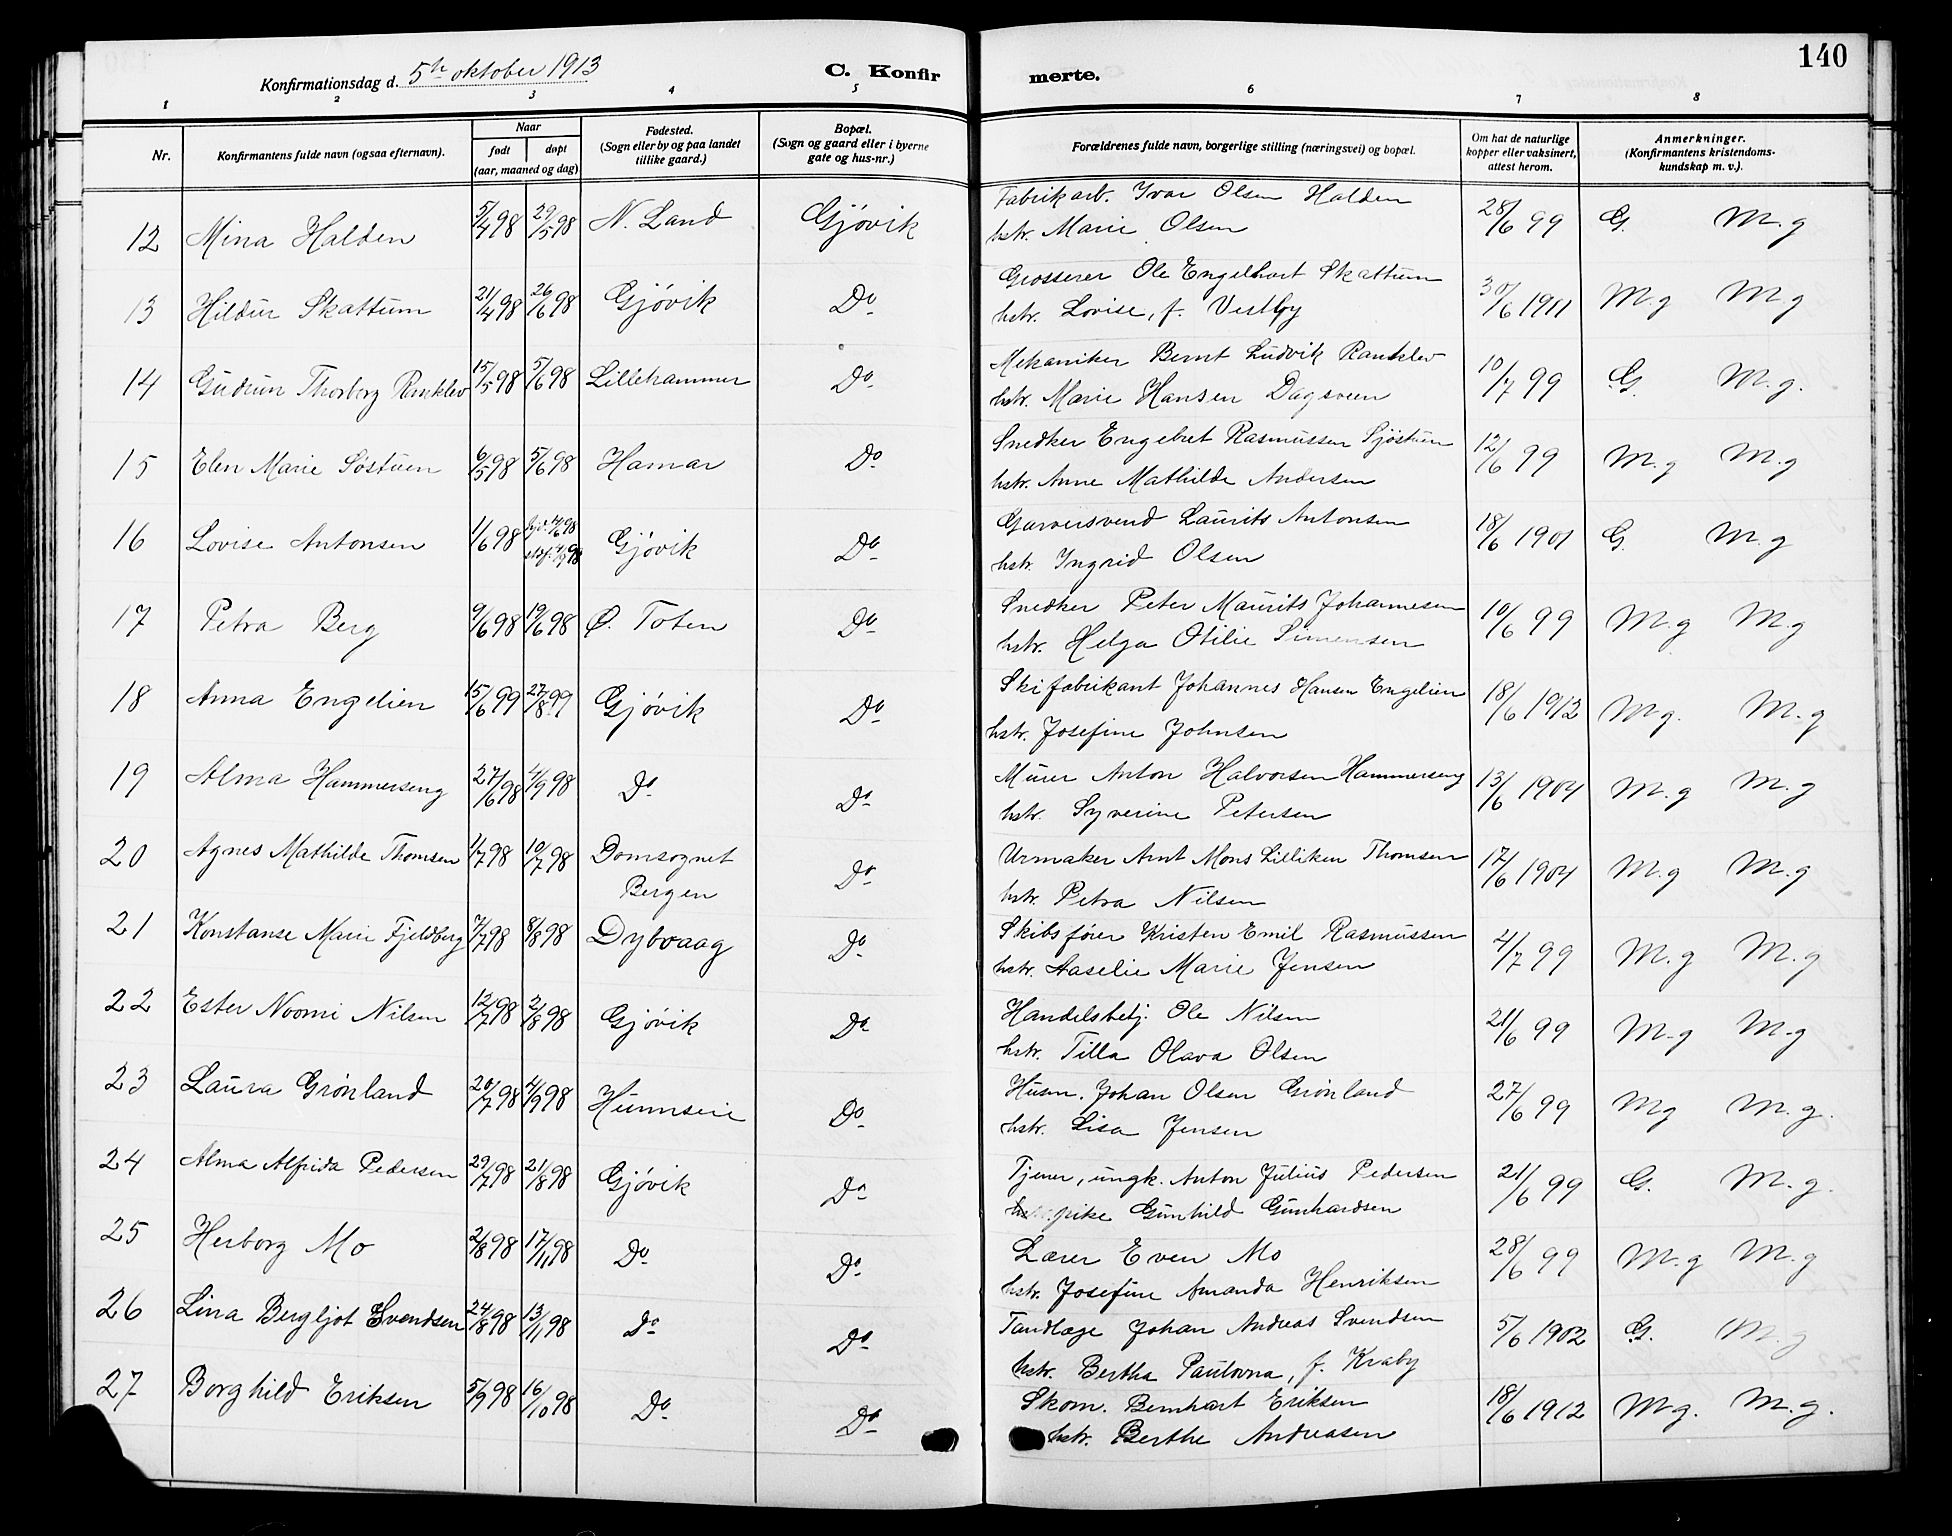 140
Konfirmationsdag d. 5te oktober 1913
C. Konfirmerte.
1 2 3 4 5 6 7 8
Nr. Konfirmantens fulde navn (ogsaa efternavn). Naar født døpt (aar, maaned og dag) Fødested. (Sogn eller by og paa landet tillike gaard.) Bopæl. (Sogn og gaard eller i byerne gate og hus-nr.) Forældrenes fulde navn, borgerlige stilling (næringsvei) og bopæl. Om hat de naturlige kopper eller vaksinert, attest herom. Anmerkninger. (Konfirmantens kristendoms-kundskap m. v.).
12 Mina Halden 5/4 98 29/5 98 N. Land Gjøvik Fabrikarb. Ivar Olsen Halden 28/6 99 G. M.g
hstr. Marie Olsen
13 Hildur Skattum 21/4 98 26/6 98 Gjøvik Do Grosserer Ole Engelhart Skattum 30/6 1911 M.g M.g
hstr. Lovise, f. Vestby
14 Gudrun Thorberg Ranklev 15/5 98 5/6 98 Lillehammer Do Mekaniker Bernt Ludvik Ranklev 10/7 99 G. M.g.
hstr. Marie Hansen Dagsveen
15 Elen Marie Søstuen 6/5 98 5/6 98 Hamar Do Snedker Engebret Rasmussen Sjøstuen 12/6 99 M.g M.g
hstr. Anne Mathilde Andersen
16 Lovise Antonsen 1/6 98 Gjøvik Do Garversvend Laurits Antonsen 18/6 1901 G. M.g
hstr. Ingrid Olsen
17 Petra Berg 9/6 98 19/6 98 Ø. Toten Do Snedker Peter Maurits Johannesen 10/6 99 M.g M.g
hstr. Helga Otilie Simensen
18 Anna Engelien 15/6 99 27/8 99 Gjøvik Do Skifabrikant Johannes Hansen Engelien 18/6 1912 M.g. M.g
hstr. Josefine Johnsen
19 Alma Hammerseng 27/6 98 4/9 98 Do Do Murer Anton Halvorsen Hammerseng 13/6 1904 M.g M.g
hstr. Syverine Petersen
20 Agnes Mathilde Thomsen 1/7 98 10/7 98 Domsognet Bergen Do Urmaker Arnt Mons Lilliken Thomsen 17/6 1904 M.g M.g
hstr. Petra Nilsen
21 Konstanse Marie Fjeldberg 7/7 98 8/8 98 Dybvaag Do Skibsfører Kristen Emil Rasmussen 4/7 99 M.g M.g
hstr. Aaselie Marie Jensen
22 Ester Noomi Nilsen 12/7 98 2/8 98 Gjøvik Do Handelsbetj. Ole Nilsen 21/6 99 M.g M.g
hstr. Tilla Olava Olsen
23 Laura Grønland 20/7 98 4/9 98 Hunnseie Do Husm. Johan Olsen Grønland 27/6 99 Mg M.g.
hstr. Lisa Jensen
24 Alma Alfrida Pedersen 29/7 98 21/8 98 Gjøvik Do Tjener, ungk. Anton Julius Pedersen 21/6 99 G. M.g.
pike Gunhild Gunhardsen
25 Herborg Mo 2/8 98 17/11 98 Do Do Lærer Even Mo 28/6 99 M.g M.g
hstr. Josefine Amanda Henriksen
26 Lina Bergljot Svendsen 24/8 98 13/11 98 Do Do Tandlæge Johan Andreas Svendsen 5/6 1902 G. M.g
hstr. Bertha Paulovna, f. Kraby
27 Borghild Eriksen 5/9 98 16/10 98 Do Do Skom. Bernhart Eriksen 18/6 1912 M.g. M.g.
hstr. Berthe Andreasen